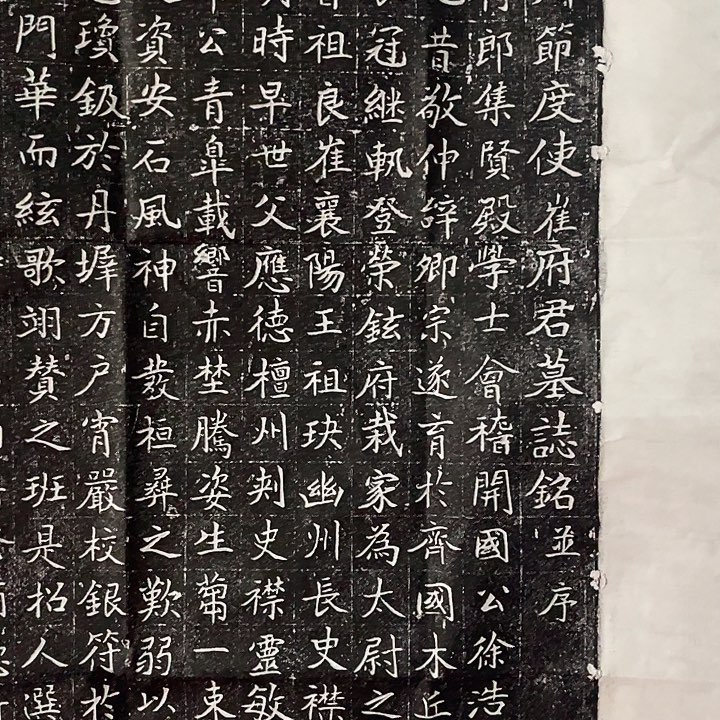 節度使崔府君墓誌銘並序
郎集賢殿學士會稽開國公徐浩
昔敬仲辭卿宗遂育於齊國木丘
冠継軌登榮鉉府栽家為太尉之
祖良崔襄陽王祖玦幽州長史襟
時早世父應德檀州刾史襟靈敏
公青皐載響赤埜騰姿生蒭一束
資安石風神自裁桓彞之歎弱以
瓊鈒於丹墀方户宵嚴校銀符於
門華而絃歌翊賛之班是招人選